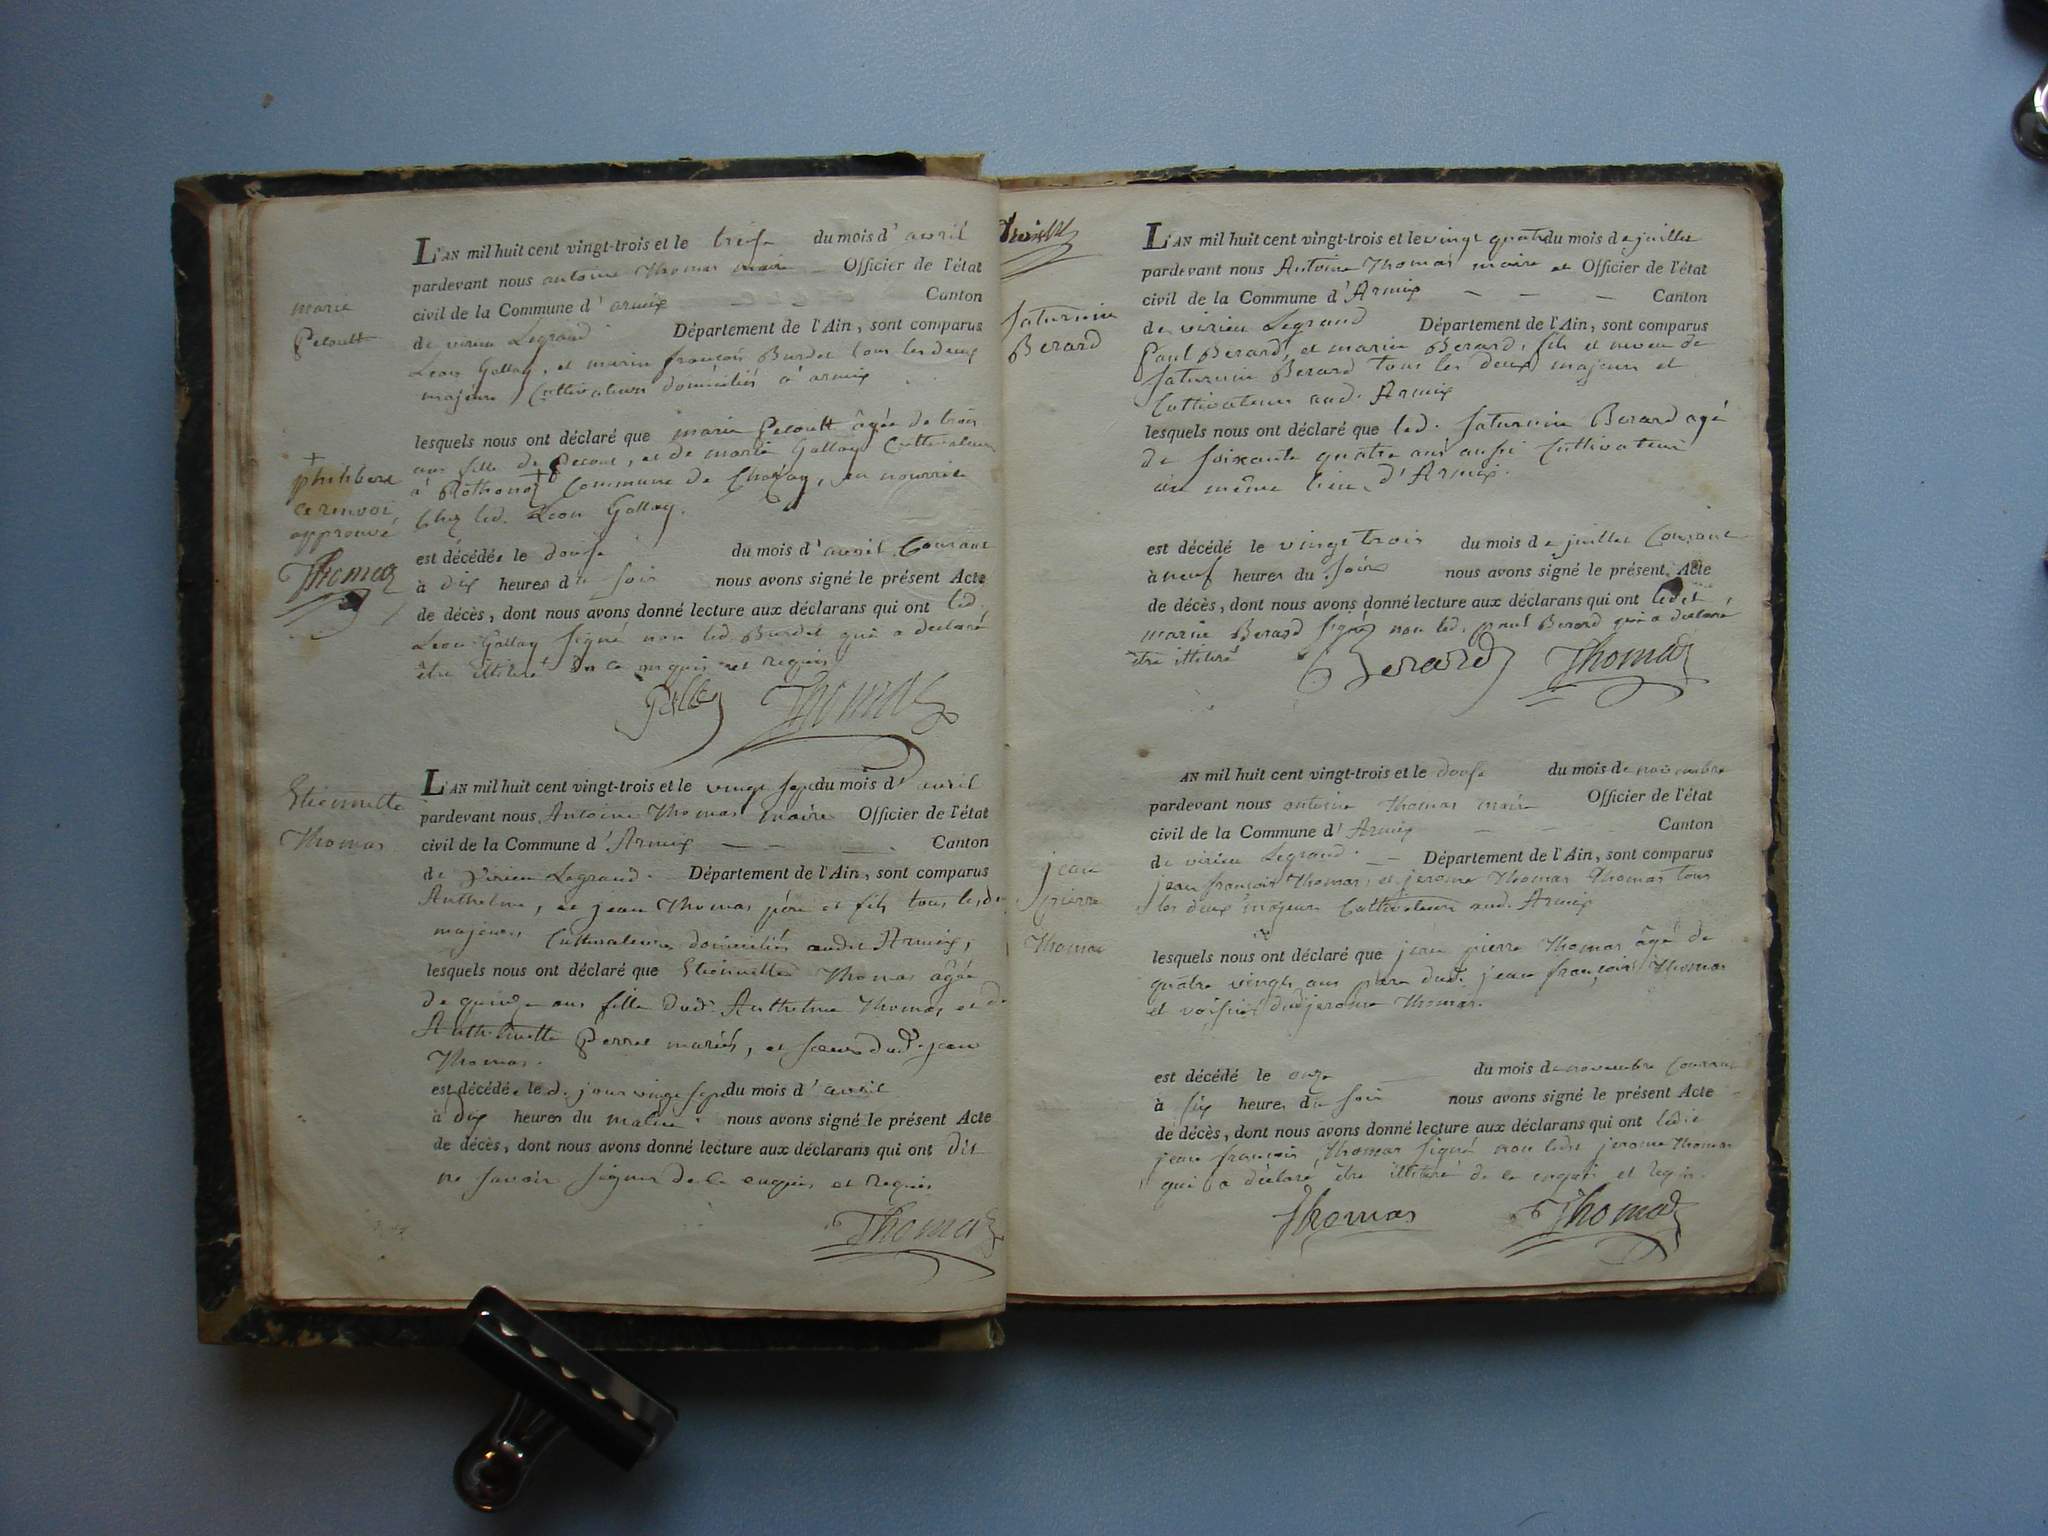 marie
Pecoult
L'AN mil huit cent vingt-trois et le treise du mois d'avril
pardevant nous antoine Thomas maire Officier de l'état
civil de la Commune d'armix Canton
de virieu Legrand Département de l'Ain, sont comparus
Leon Gallay, et marin françois Burdet tous les deux
majeurs Cultivateurs domiciliés a armix
lesquels nous ont déclaré que marie Pecoult âgée de trois
ans fille de + Pecout, et de marie Gallay Cultivateurs
à Rothonod Commune de Chazay, en nourrice
chez led. Leon Gallay.
+
philibert
ce renvoi
approuvé
Thomas
est décédée le douse du mois d'avril Courant
à dix heures du soir nous avons signé le présent Acte
de décès, dont nous avons donné lecture aux déclarans qui ont led.
Leon Gallay signé non led. Burdet qui a declaré
être illitéré de ce enquis et requis
Gallay Thomas
Etiennette
Thomas
L'AN mil huit cent vingt-trois et le vingt sept du mois d'avril
pardevant nous Antoine Thomas maire Officier de l'état
civil de la Commune d'Armix — — — Canton
de Virieu Legrand. Département de l'Ain, sont comparus
Anthelme, et jean Thomas père et fils tous les d
majeurs Cultivateurs domiciliés audit Armix,
lesquels nous ont déclaré que Etiennette Thomas âgée
de quinze ans fille dud. Anthelme Thomas, et de
Anthelmette Perret mariés, et sœur dud. jean
Thomas.
est décédée le d. jour vingt sept du mois d'avril
à dix heures du matin nous avons signé le présent Acte
de décès, dont nous avons donné lecture aux déclarans qui ont dit
ne savoir signer de ce enquis et requis
Thomas
Saturnin
Berard
L'AN mil huit cent vingt-trois et le vingt quatre du mois de juillet
pardevant nous Antoine Thomas maire et Officier de l'état
civil de la Commune d'Armix — — — Canton
de virieu Legrand Département de l'Ain, sont comparus
Paul Berard, et marin Berard, fils et neveu de
Saturnin Berard tous les deux majeurs et
Cultivateurs aud. Armix
lesquels nous ont déclaré que led. Saturnin Berard agé
de soixante quatre ans aussi Cultivateur
au même lieu d'Armix.
est décédé le vingt trois du mois de juillet Courant
à neuf heures du soir nous avons signé le présent Acte
de décès, dont nous avons donné lecture aux déclarans qui ont ledit
marin Berard signé non led. paul Berard qui a déclaré
être illitéré
Berard Thomas
jean
pierre
Thomas
AN mil huit cent vingt-trois et le douse du mois de novembre
pardevant nous antoine Thomas maire Officier de l'état
civil de la Commune d'Armix — — — Canton
de virieu Legrand. — Département de l'Ain, sont comparus
jean françois Thomas, et jerome Thomas Thomas tous
les deux majeurs Cultivateurs aud. Armix
lesquels nous ont déclaré que jean pierre Thomas âgé de
quatre vingts ans père dud. jean françois Thomas
et voisin dud. jerome Thomas.
est décédé le onze du mois de novembre Courant
à six heures du soir nous avons signé le présent Acte
de décès, dont nous avons donné lecture aux déclarans qui ont ledit
jean françois Thomas signé non ledit jerome Thomas
qui a déclaré être illitéré de ce enquis et requis.
Thomas Thomas